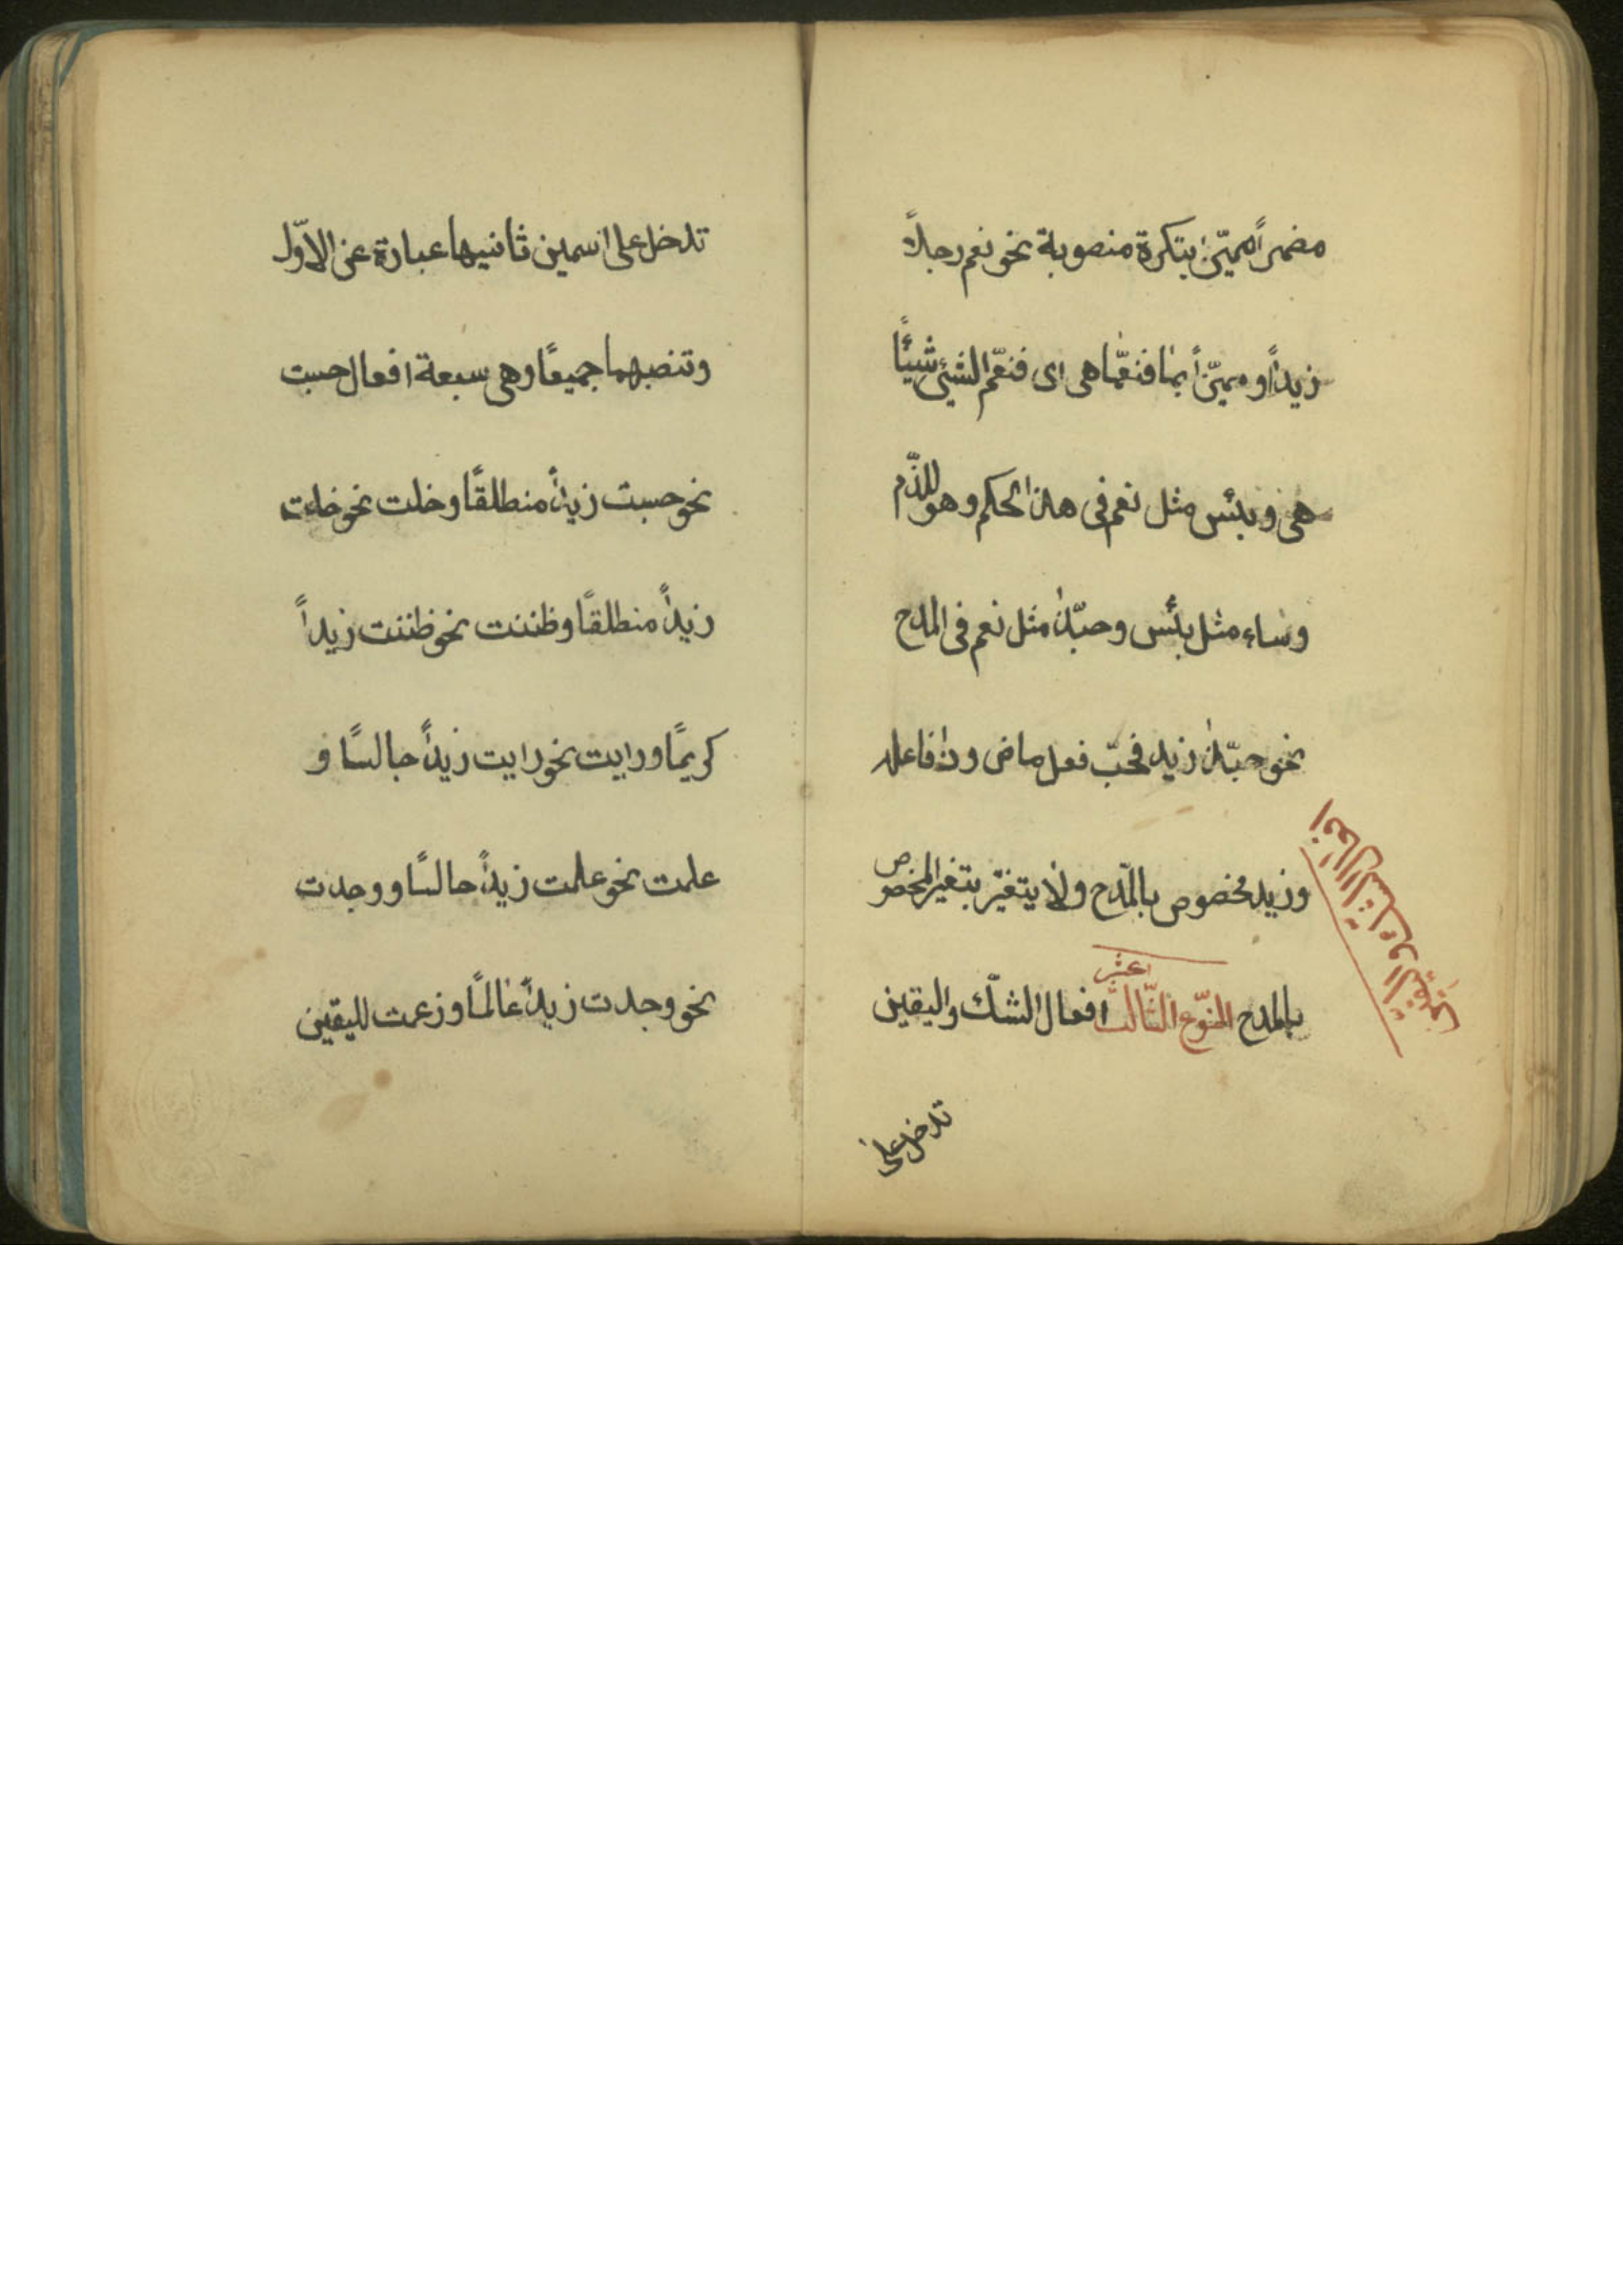 مضمراً مميّزاً بنكرة منصوبة نحو نعم رجلاً
زيداً و مميّزاً بما فنعمّا هى اى فنعّم الشيئ شيئًا
هى و بئس مثل نعم فى هذا الحكم و هو للذّم
و ساء مثل بئس و حبّذا مثل نعم فى المدح
نحو حبّذا زيد فحبّ فعل ماض و ذا فاعله
و زيد مخصوص بالمّدح و لا يتغيّر بتغير المخصوص
بالمدح النّوع الثّالث عشر افعال الشكّ و اليقين
افعال الشك و اليقين
تدخل على
تدخل على اسمين ثانيهما عبارة عن الاوّل
و تنصبهما جميعًا و هى سبعة افعال حسبت
نحو حسبت زيداً منطلقًا و خلت نحو خلت
زيداً منطلقًا و ظننت نحو ظننت زيداً
كريمًا و رايت نحو رايت زيداً جالسًا و
علمت نحو علمت زيداً جالسًا و وجدت
نحو وجدت زيداً عالمًا و زعمت لليقين